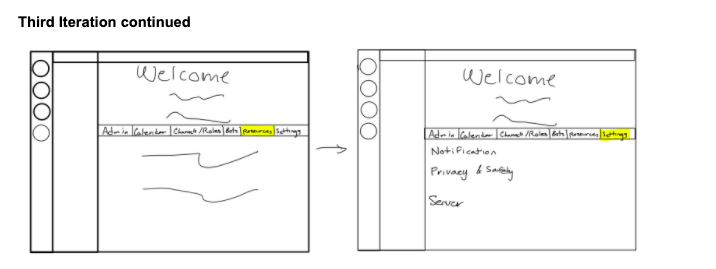 Third Iteration continued
Welcome
Admin Calendar Channels/Roles Bots Resources Settings
Welcome
Admin Calendar Channels/Roles Bots Resources Settings
Notification
Privacy & Safety
Server